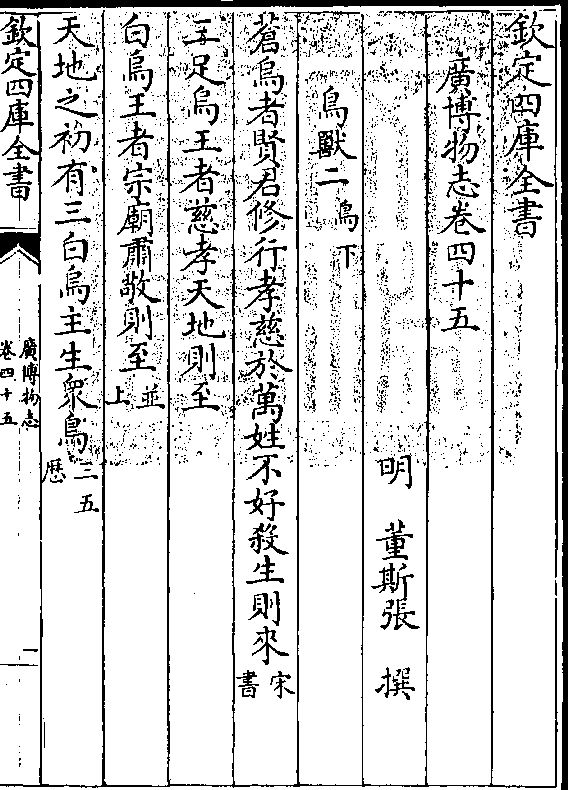 欽定四庫全書
廣博物志卷四十五
明　董斯張　撰
鳥獸二鳥下
蒼烏者賢君修行孝慈於萬姓不好殺生則來宋書
三足烏王者慈孝天地則至
白烏王者宗廟肅敬則至並上
天地之初有三白烏主生衆鳥三五歴
欽定四庫全書
廣博物志
卷四十五
一